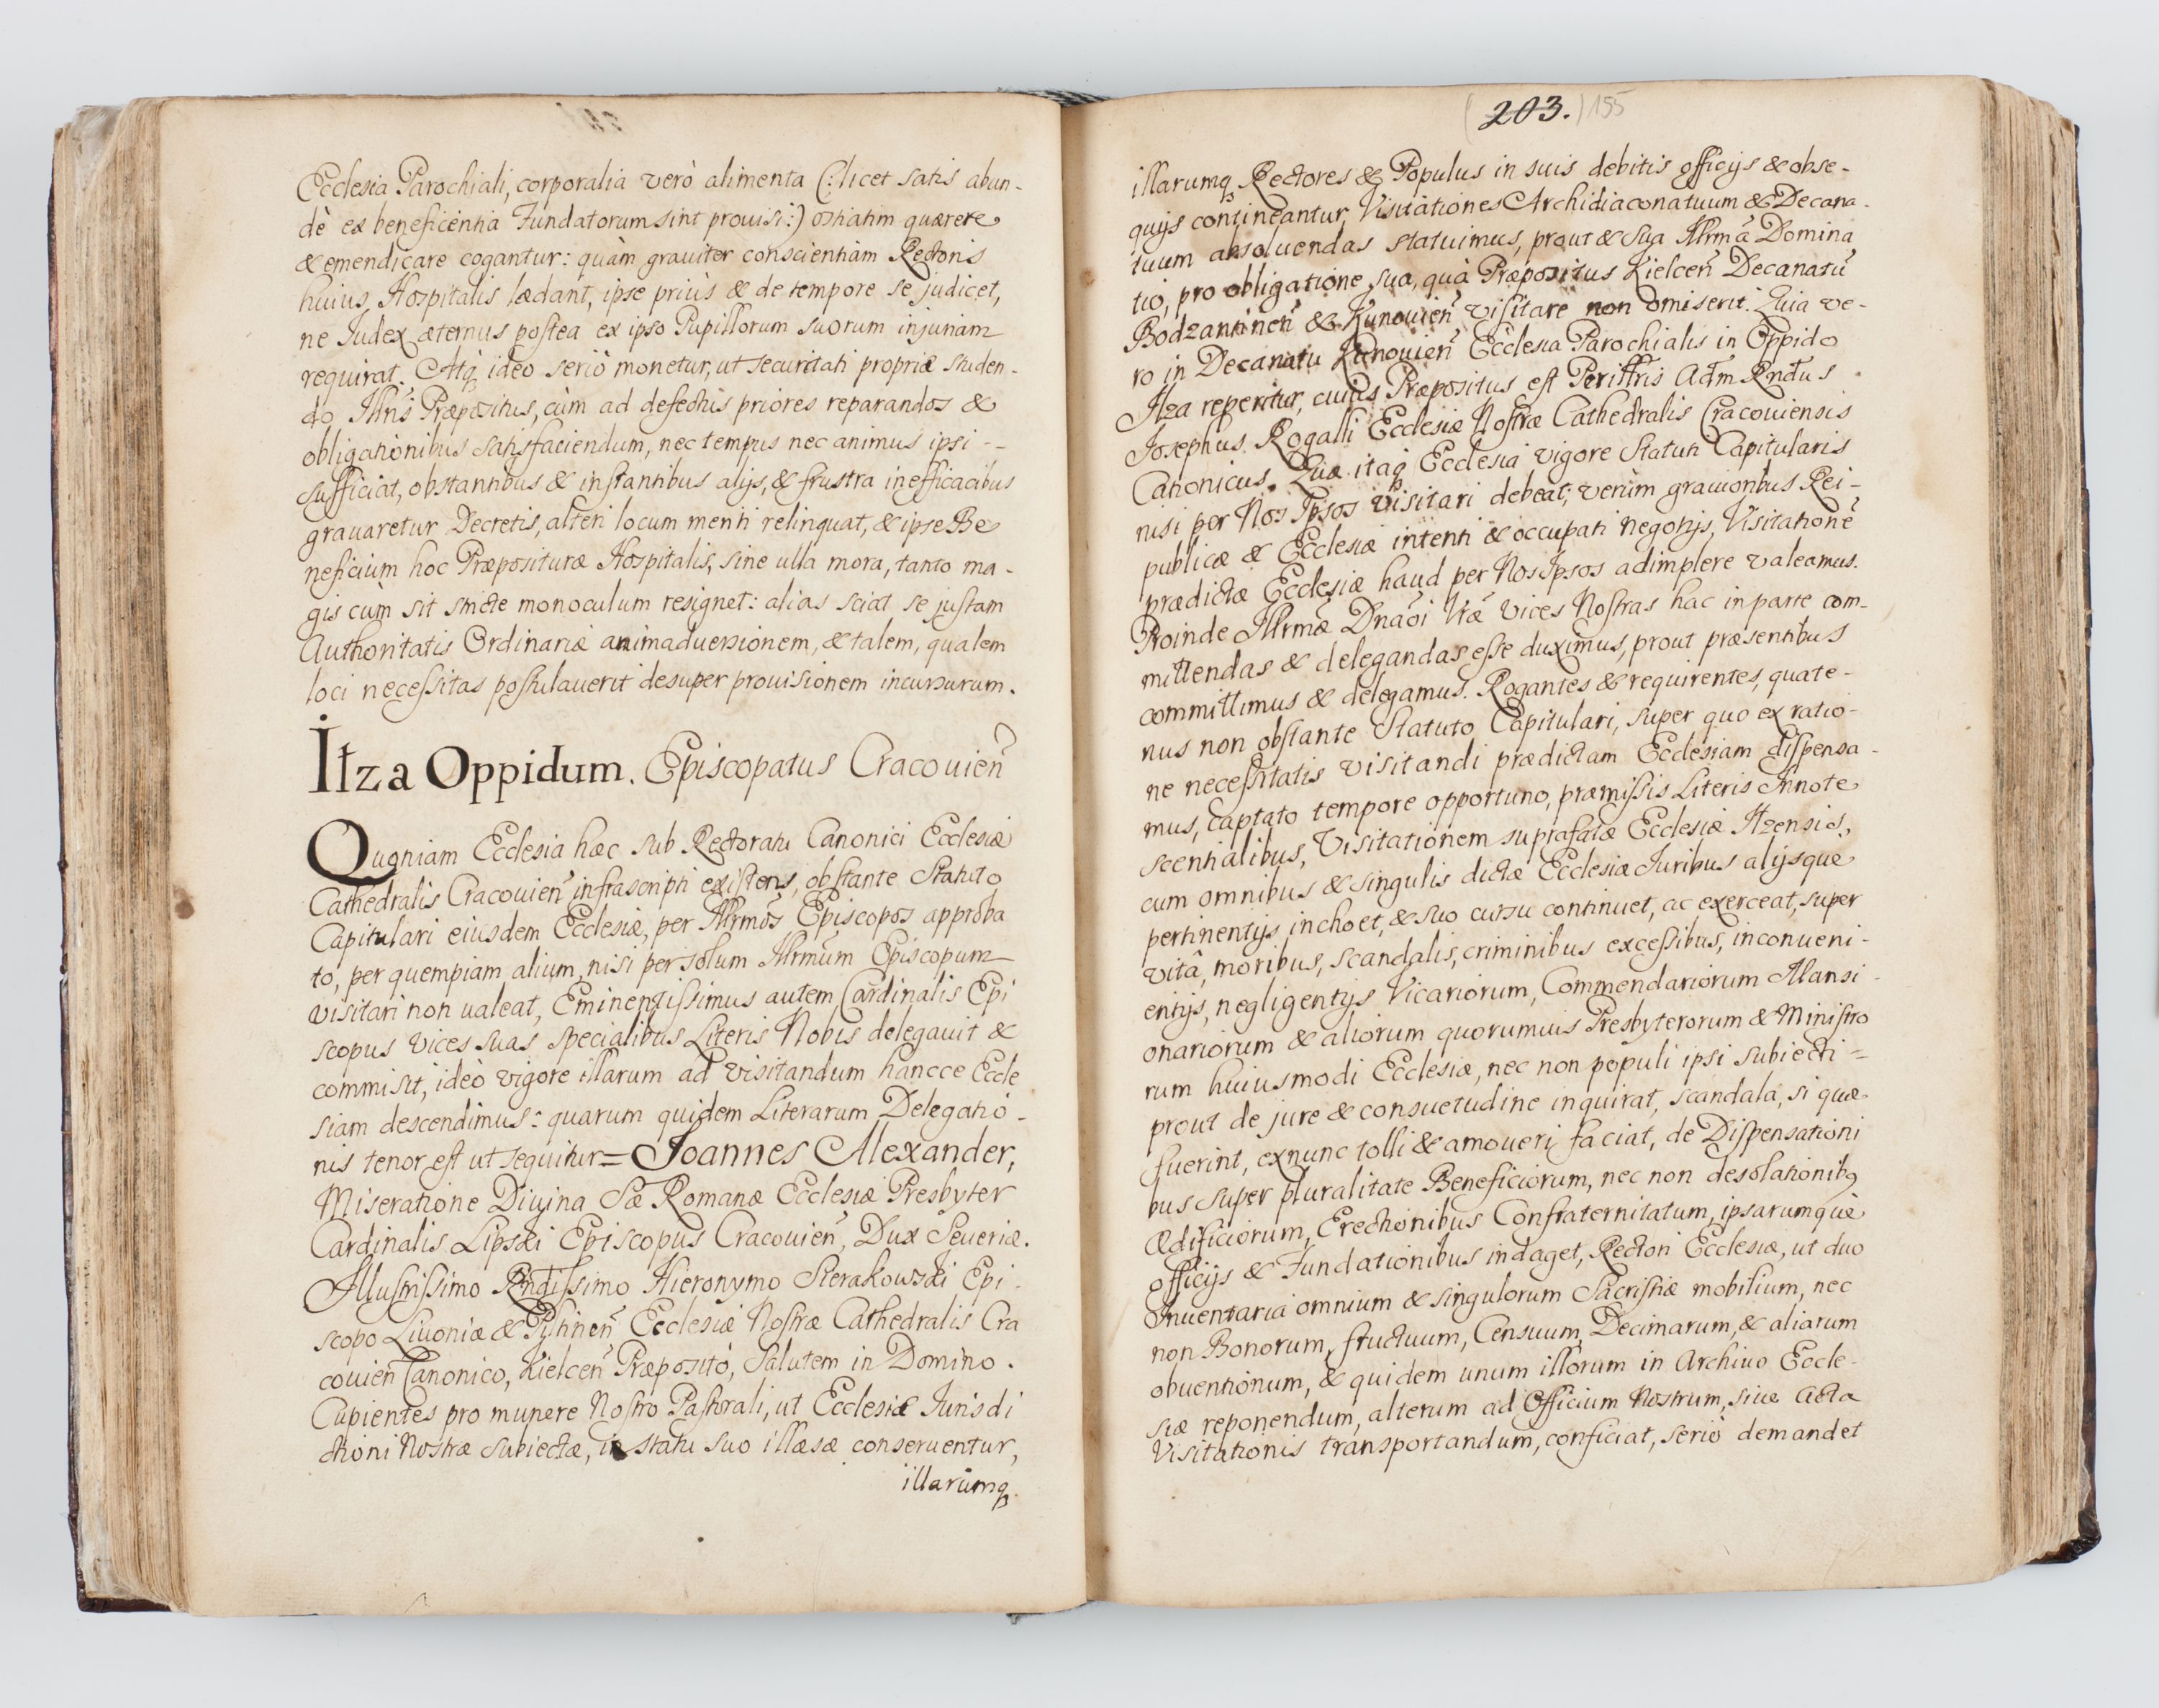 Ecclesia Parochiali, corporalia verò alimenta (: licet satis abun-
dè ex beneficentia Fundatorum sint prouisi :) ostiatim quærere
& emendicare cogantur: quàm grauiter conscientiam Rectoris
huius Hospitalis lædant, ipse priùs & de tempore se judicet,
ne Iudex æternus postea ex ipso Pupillorum suorum injuriam
requirat. Atq ideo seriò monetur, ut securitati propriæ studen-
do Illris Præpositus, cùm ad defectus priores reparandos &
obligationibus satisfaciendum, nec tempus nec animus ipsi --
sufficiat, obstantibus & instantibus alijs, & frustra inefficacibus
grauaretur Decretis, alteri locum menti relinquat, & ipse Be
neficium hoc Præposituræ Hospitalis, sine ulla mora, tanto ma-
gis cùm sit stricte monoculum resignet: alias sciat se justam
Authoritatis Ordinariæ animaduersionem, & talem, qualem
loci necessitas postulauerit desuper prouisionem incursurum.
Iłza Oppidum. Episcopatus Cracouien̄
Quoniam Ecclesia hæc sub Rectoratu Canonici Ecclesiæ
Cathedralis Cracouien̄ infrascripti existens, obstante Statuto
Capitulari eiusdem Ecclesiæ, per Illrmōs Episcopos approba
to, per quempiam alium, nisi per solum Illrmūm Episcopum
visitari non ualeat, Eminentissimus autem Cardinalis Epi
scopus vices suas specialibus Literis Nobis delegauit &
commisit, ideò vigore illarum ad visitandum hancce Eccle
siam descendimus: quarum quidem Literarum Delegatio-
nis tenor est ut sequitur = Joannes Alexander,
Miseratione Diuina Sæ Romanæ Ecclesiæ Presbyter
Cardinalis Lipski Episcopus Cracouien̄, Dux Seueriæ.
Illustrissimo Rndissimo Hieronymo Sierakowski Epi-
scopo Liuoniæ & Pyltinen̄ Ecclesiæ Nostræ Cathedralis Cra
couien̄ Canonico, Kielcen̄ Præposito, Salutem in Domino.
Cupientes pro munere Nostro Pastorali, ut Ecclesiæ Iurisdi
ctioni Nostræ subiectæ, in statu suo illæsæ conseruentur,
illarumq
203. 155
illarumq Rectores & Populus in suis debitis officijs & obse-
quijs contineantur, Visitationes Archidiaconatuum & Decana-
tuum absoluendas statuimus, prout & Sua Illrmā Domina
tio, pro obligatione sua, quà Præpositus Kielcen̄ Decanatū
Bodzantinen̄ & Kunouien̄ visitare non omiserit. Quia ve-
ro in Decanatu Kunouien̄ Ecclesia Parochialis in Oppido
Ilza reperitur, cuius Præpositus est Perillris Adm̄ Rndus
Josephus Rogalli Ecclesiæ Nostræ Cathedralis Cracouiensis
Canonicus. Quæ itaq Ecclesia vigore Statuti Capitularis
nisi per Nos Ipsos visitari debeat; verùm grauioribus Rei-
publicæ & Ecclesiæ intenti & occupati negotijs, Visitationē
prædictæ Ecclesiæ haud per Nos Ipsos adimplere valeamus.
Proinde Illrmæ Dnāoi Vræ vices Nostras hac in parte com-
mittendas & delegandas esse duximus, prout præsentibus
committimus & delegamus. Rogantes & requirentes, quate-
nus non obstante Statuto Capitulari, super quo ex ratio-
ne necessitatis visitandi prædictam Ecclesiam dispensa-
mus, captato tempore opportuno, præmissis Literis Innote
scentialibus, Visitationem suprafatæ Ecclesiæ Ilzensis,
cum omnibus & singulis dictæ Ecclesiæ Iuribus alijsque
pertinentijs inchoet, & suo cursu continuet, ac exerceat, super
vitâ, moribus, scandalis, criminibus excessibus, inconueni-
entijs, negligentijs Vicariorum, Commendariorum Mansi-
onariorum & aliorum quorumuis Presbyterorum & Ministro
rum huiusmodi Ecclesiæ, nec non populi ipsi subiecti =
prout de jure & consuetudine inquirat, scandala, si quæ
fuerint, exnunc tolli & amoueri faciat, de Dispensationi
bus super pluralitate Beneficiorum, nec non desolationibq
Ædificiorum, Erectionibus Confraternitatum, ipsarumquè
officijs & Fundationibus indaget, Rectori Ecclesiæ, ut duo
Inuentaria omnium & singulorum Sacristiæ mobilium, nec
non Bonorum, fructuum, Censuum, Decimarum, & aliarum
obuentionum, & quidem unum illorum in Archiuo Eccle-
siæ reponendum, alterum ad Officium Nostrum, siue Acta
Visitationis transportandum, conficiat, seriò demandet